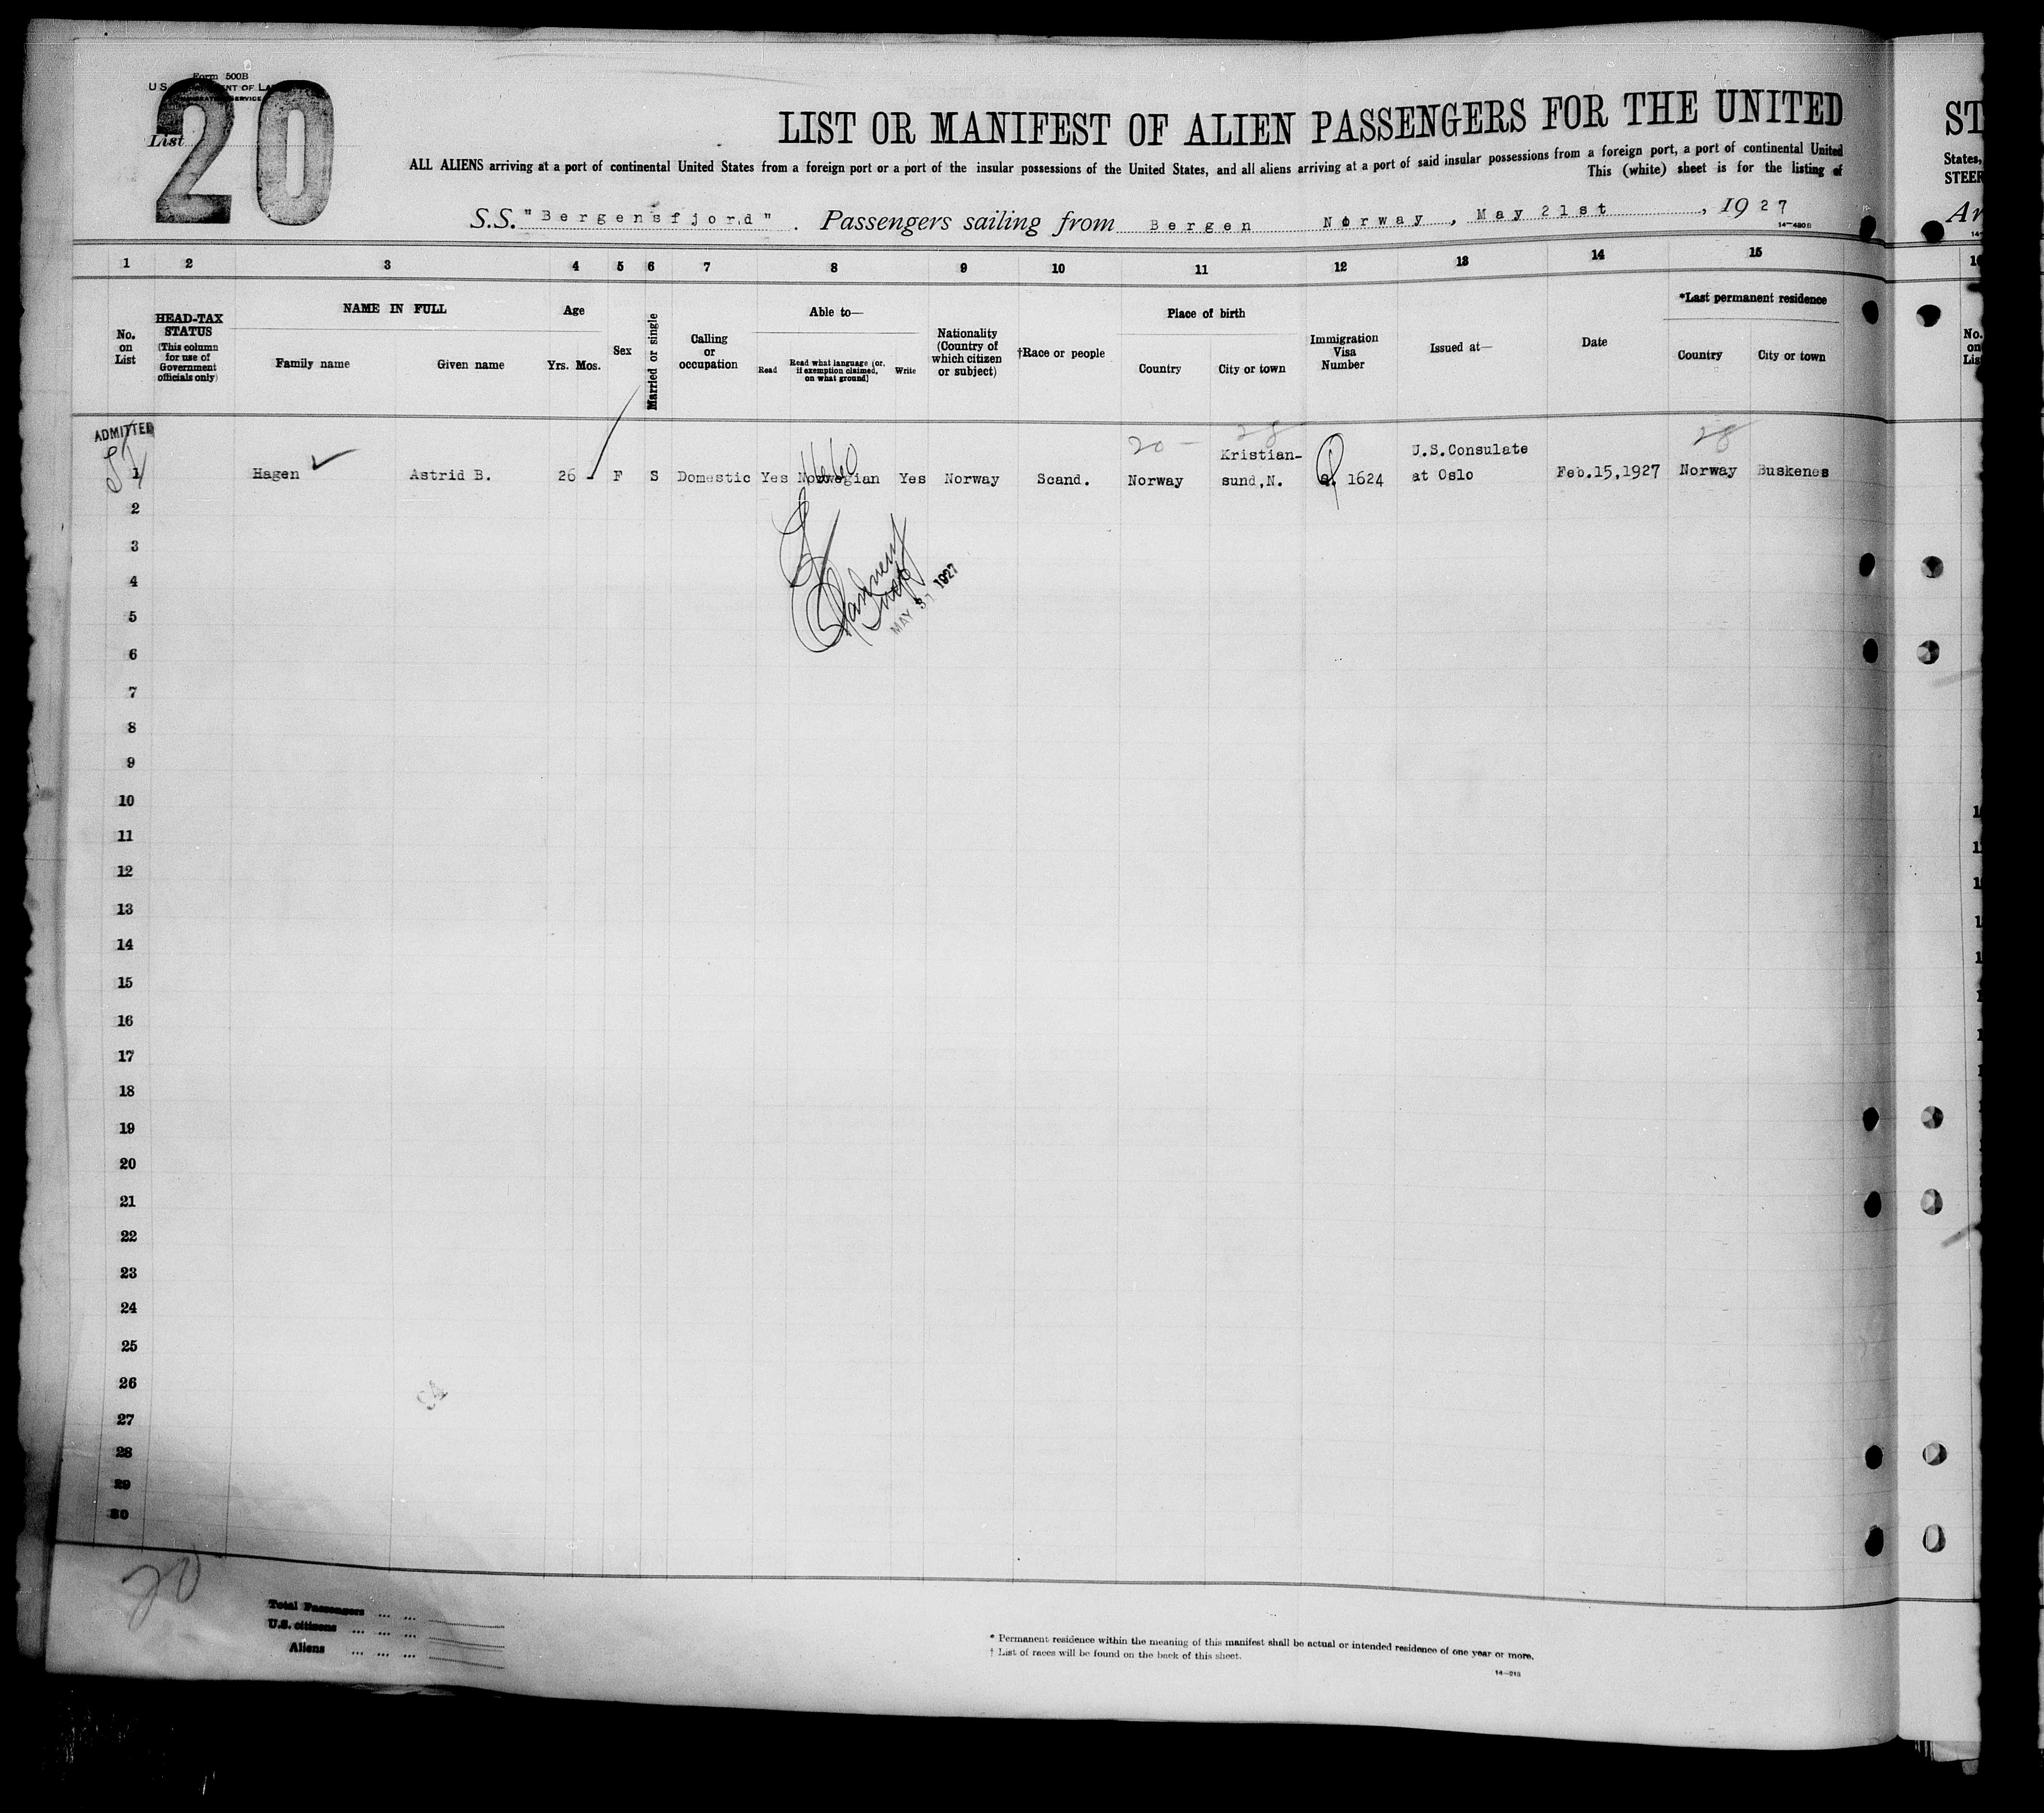 Form 500B
List
20
LIST OR MANIFEST OF ALIEN PASSENGERS FOR THE UNITED
ALL ALIENS arriving at a port of continental United States from a foreign port or a port of the insular possessions of the United States, and all aliens arriving at a port of said insular possessions from a foreign port, a port of continental United
This (white) sheet is for the listing of
S.S. "Bergensfjord". Passengers sailing from Bergen Norway, May 21st, 1927
14-430B
1 2 3 4 5 6 7 8 9 10 11 12 13 14 15
No. on List
HEAD-TAX STATUS (This column for use of Government officials only)
NAME IN FULL
Family name Given name
Age
Yrs. Mos.
Sex
Married or single
Calling or occupation
Able to—
Read Read what language (or, if exemption claimed, on what ground) Write
Nationality (Country of which citizen or subject)
†Race or people
Place of birth
Country City or town
Immigration Visa Number
Issued at—
Date
*Last permanent residence
Country City or town
ADMITTED
20 - 28 28
1 Hagen Astrid B. 26 F S Domestic Yes Norwegian Yes Norway Scand. Norway Kristian-sund,N. 1624 U.S.Consulate at Oslo Feb.15,1927 Norway Buskenes
2
3
4
MAY 31 1927
5
6
7
8
9
10
11
12
13
14
15
16
17
18
19
20
21
22
23
24
25
26
27
28
29
30
20
Total Passengers ... ...
U.S. citizens ... ... ...
Aliens ... ... ...
* Permanent residence within the meaning of this manifest shall be actual or intended residence of one year or more.
† List of races will be found on the back of this sheet.
ST
States,
STEER
Ar